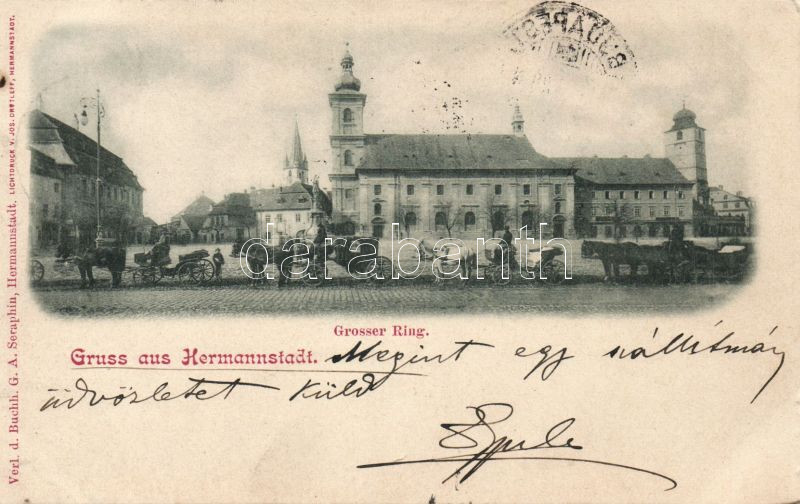 BUDAPEST
Grosser Ring.
Gruss aus Hermannstadt. Megint egy szállítmány
üdvözletet küld
Verl. d. Buchh. G. A. Seraphin, Hermannstadt.
LICHTDRUCK V. JOS. DROTLEFF, HERMANNSTADT.
darabanth.com